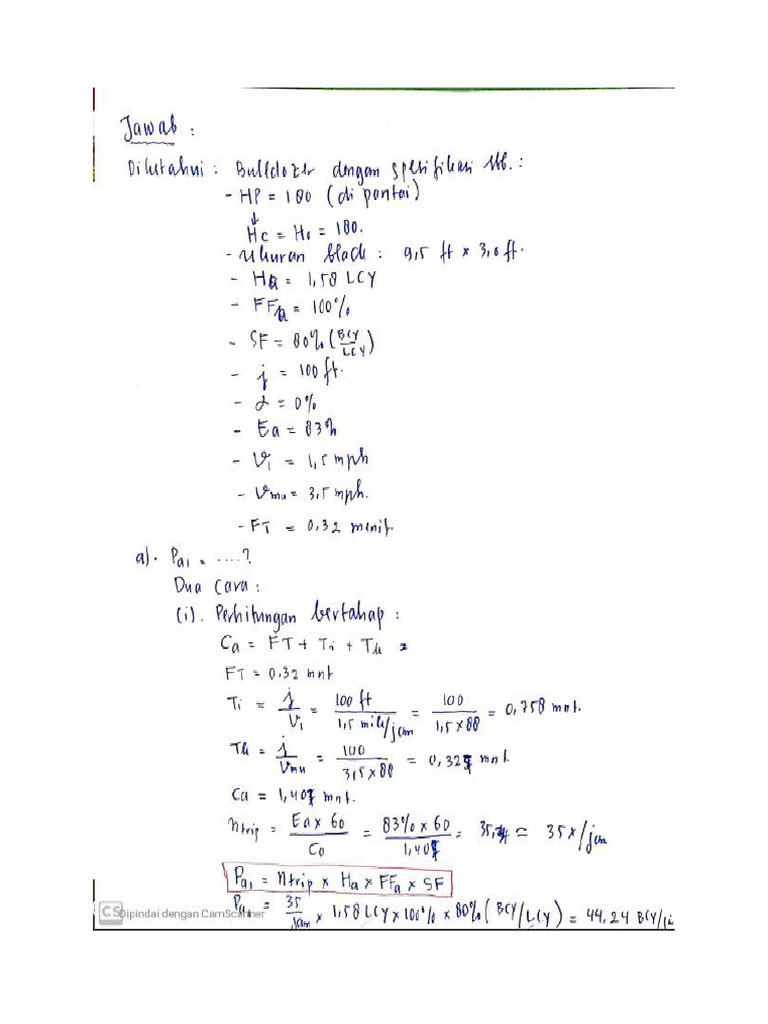 Jawab :
Diketahui : Bulldozer dengan spesifikasi sbb. :
- HP = 180 (di pantai)
↓
Hc = Ho = 180.
- Ukuran blade : 9,5 ft x 3,0 ft.
- Ha = 1,58 LCY
- FFa = 100%
- SF = 80% (BCY/LCY)
- j = 100 ft.
- α = 0%
- Ea = 83%
- Vi = 1,5 mph
- Vmu = 3,5 mph.
- FT = 0,32 menit.
a). Pa1 = ....?
Dua Cara :
(i). Perhitungan bertahap :
Ca = FT + Ti + Tk =
FT = 0,32 mnt
Ti = j/Vi = 100 ft/1,5 mile/jam = 100/1,5 x 88 = 0,758 mnt.
Tk = j/Vmu = 100/3,5 x 88 = 0,325 mnt.
Ca = 1,403 mnt.
ntrip = Ea x 60/Ca = 83% x 60/1,403 = ≃ 35 x/jam
Pa1 = ntrip x Ha x FFa x SF
Pa1 = 35/jam x 1,58 LCY x 100% x 80% (BCY/LCY) = 44,24 BCY/
CS Dipindai dengan CamScanner